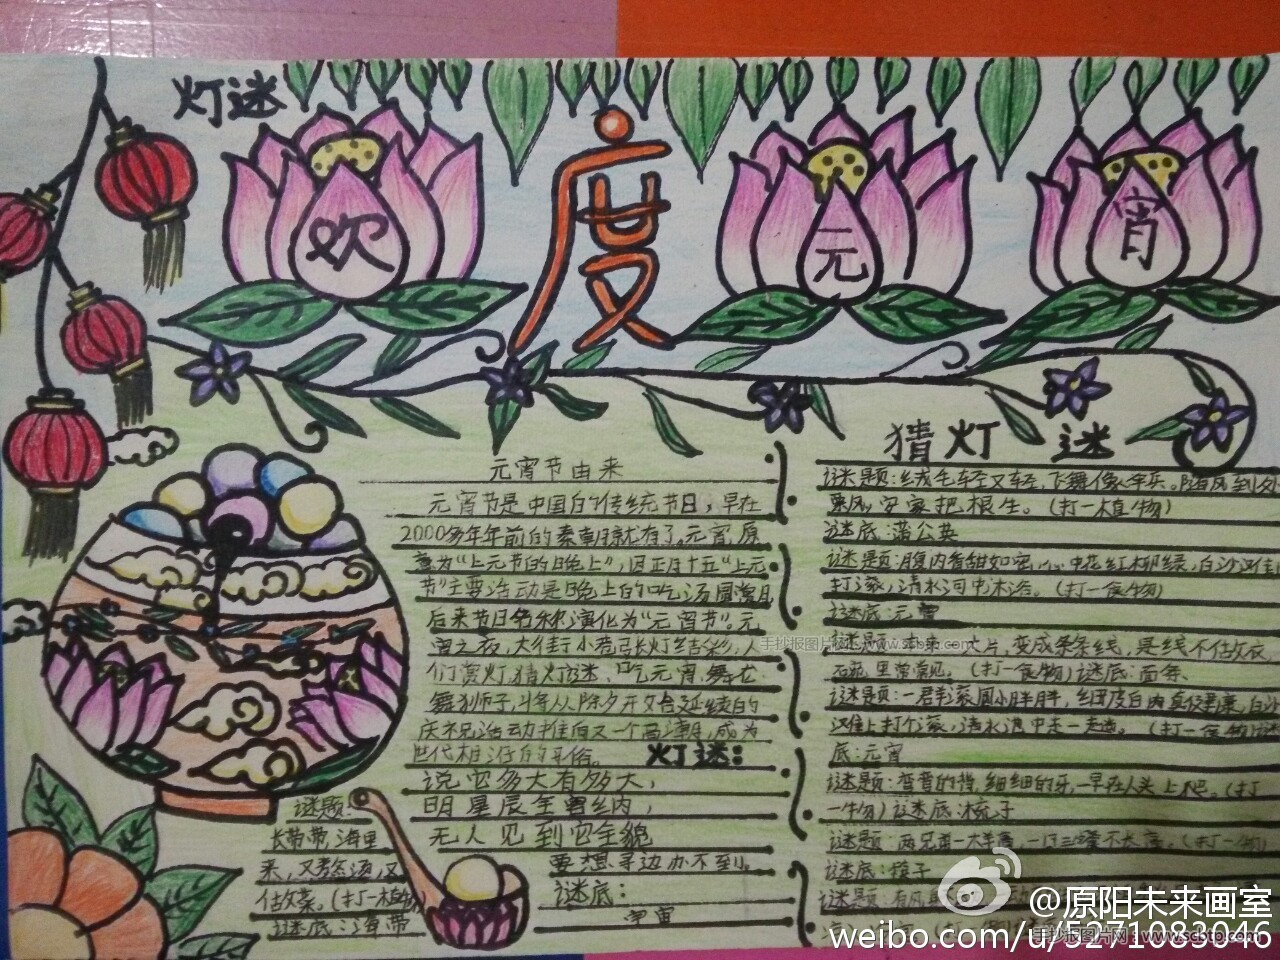 灯谜
欢
度
元
宵
元宵节由来
元宵节是中国的传统节日，早在
2000多年年前的秦朝就有了。元宵，原
意为“上元节的晚上”，因正月十五“上元
节”主要活动是晚上的吃汤圆赏月
后来节日名称演化为“元宵节”。元
宵之夜，大街小巷张灯结彩，人
们赏灯，猜灯谜、吃元宵、舞龙
舞狮子，将从除夕开始延续的
庆祝活动推向又一个高潮，成为
世代相沿的习俗。
灯谜：
说它多大有多大，
明星辰全曾丝内，
无人见到它全貌
要想寻边办不到。
谜底：
宇宙
谜题：
长带带，海里
来，又熬汤，又
估故菜。（打一植物）
谜底：海带
猜灯谜
谜题：绒毛轻又轻，飞舞像伞兵。随风到处
乘风，安家把根生。（打一植物）
谜底：蒲公英
谜题：腹内香甜如蜜，心中花红柳绿，白沙滩
打滚，清水河中沐浴。（打一食物）
谜底：元宵
片，变成条条线，是线不估故衣，
里常常见。（打一食物）谜底：面条、
谜题：一群滚圆小胖胖，细皮白肉
滩上打个滚，清水池中走一走遭。（打一食物）谜
底：元宵
谜题：弯弯的背，细细的牙，一早在人头上爬。（打
一物）谜底：梳子
谜题：两兄弟一
不长高。（打一物）
谜底：筷子
谜题：有风
手抄报图片网 www.scbtp.com
@原阳未来画室
weibo.com/u/5271083046
手抄报图片网 www.scbtp.com